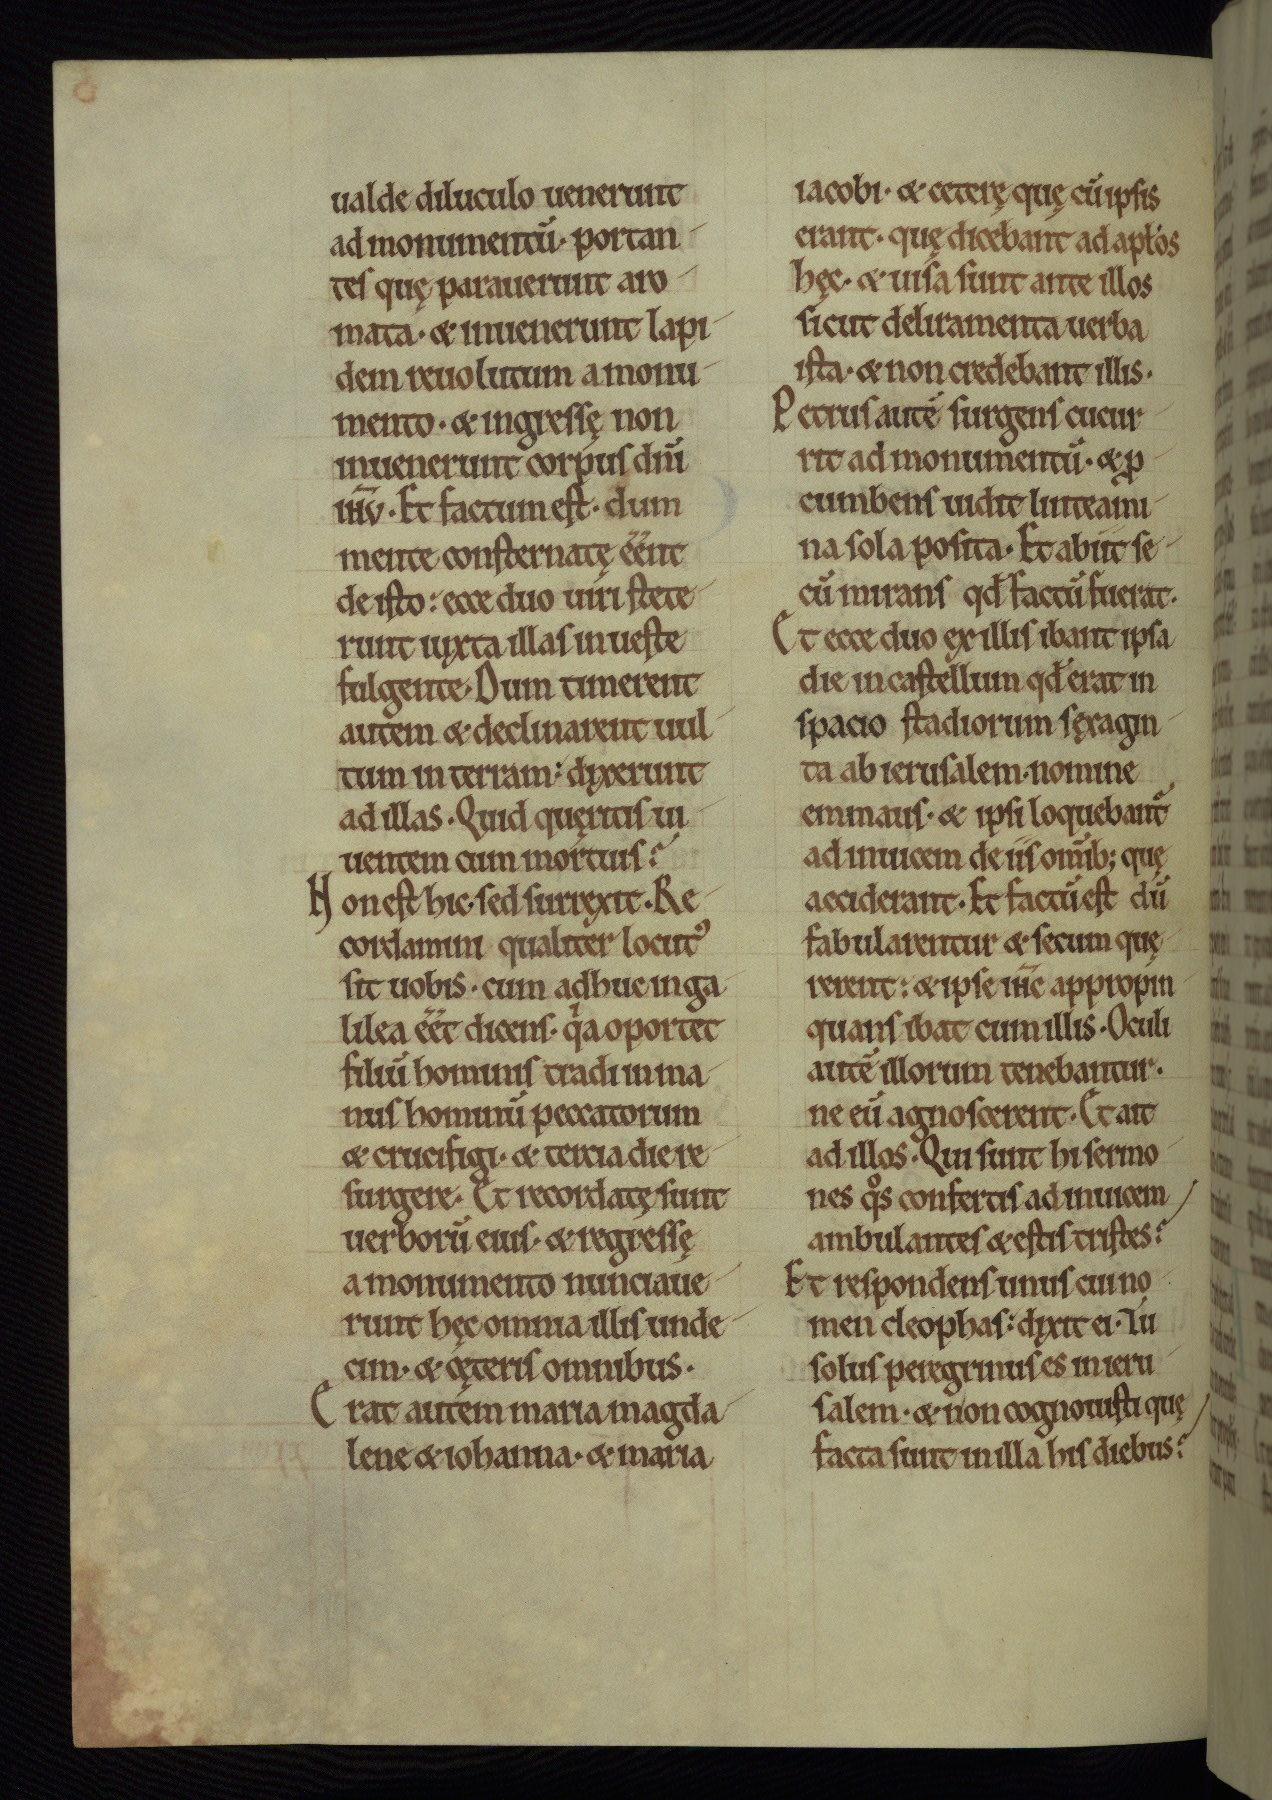 ualde diluculo uenerunt
ad monumentū· portan
tes quę parauerunt aro
mata· & inuenerunt lapi
dem reuolutum a monu
mento· & ingressę non
inuenerunt corpus dn̄i
ih̄u· Et factum est· dum
mente consternatę ēēnt
de isto: ecce duo uiri stete
runt iuxta illas in ueste
fulgente· Dum timerent
autem & declinarent uul
tum in terram: dixerunt
ad illas· Quid quęritis ui
uentem cum mortuis?
Non est hic· sed surrexit· Re
cordamini qualiter locutꝰ
sit uobis· cum adhuc in ga
lilea ēēt dicens· qͥa oportet
filiū hominis tradi in ma
nus hominū peccatorum
& crucifigi· & tercia die re
surgere· Et recordatę sunt
uerborū eius· & regressę
a monumento nunciaue
runt hęc omnia illis unde
cim· & cęteris omnibus·
Erat autem maria magda
lene & iohanna· & maria
iacobi· & ceterę quę cū ipsis
erant· quę dicebant ad apłos
hęc· & uisa sunt ante illos
sicut deliramenta uerba
ista· & non credebant illis·
Petrus autē surgens cucur
rit ad monumentū· & ꝓ
cumbens uidit linteami
na sola posita· Et abiit se
cū mirans qđ factū fuerat·
Et ecce duo ex illis ibant ipsa
die in castellum qđ erat in
spacio stadiorum sexagin
ta ab ierusalem· nomine
emmaus· & ipsi loquebant᷑
ad inuicem de iis om̄ib; quę
acciderant· Et factū est dū
fabularentur & secum quę
rerent: & ipse ih̄c appropin
quans ibat cum illis· Oculi
autē illorum tenebantur·
ne eū agnoscerent· Et ait
ad illos· Qui sunt hi sermo
nes qͦs confertis ad inuicem
ambulantes & estis tristes?
Et respondens unus cui no
men cleophas: dixit ei· Tu
solus peregrinus es in ieru
salem· & non cognouisti quę
facta sunt in illa his diebus?